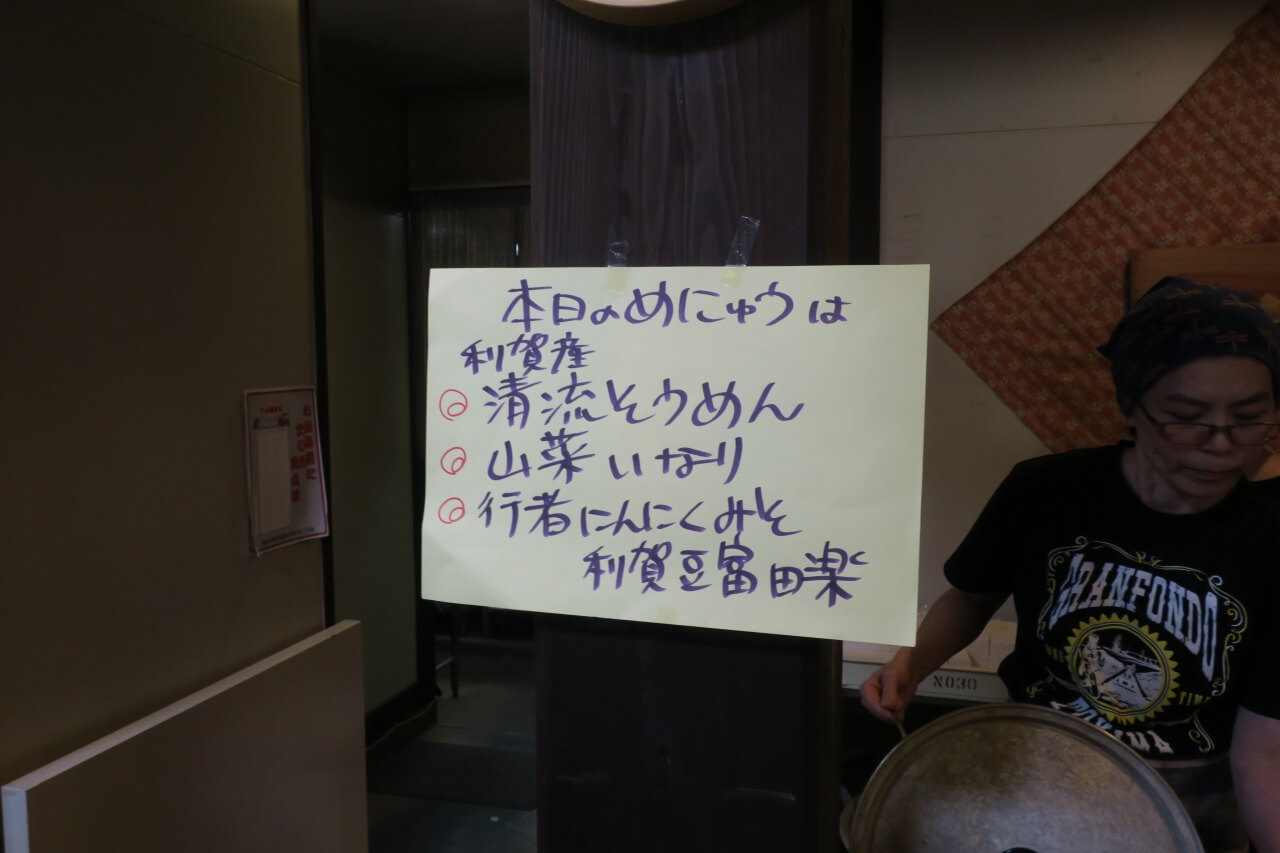 本日のめにゅうは
利賀産
◎ 清流そうめん
◎ 山菜いなり
◎ 行者にんにくみそ
利賀豆富田楽
GRANFONDO
TIME
N030